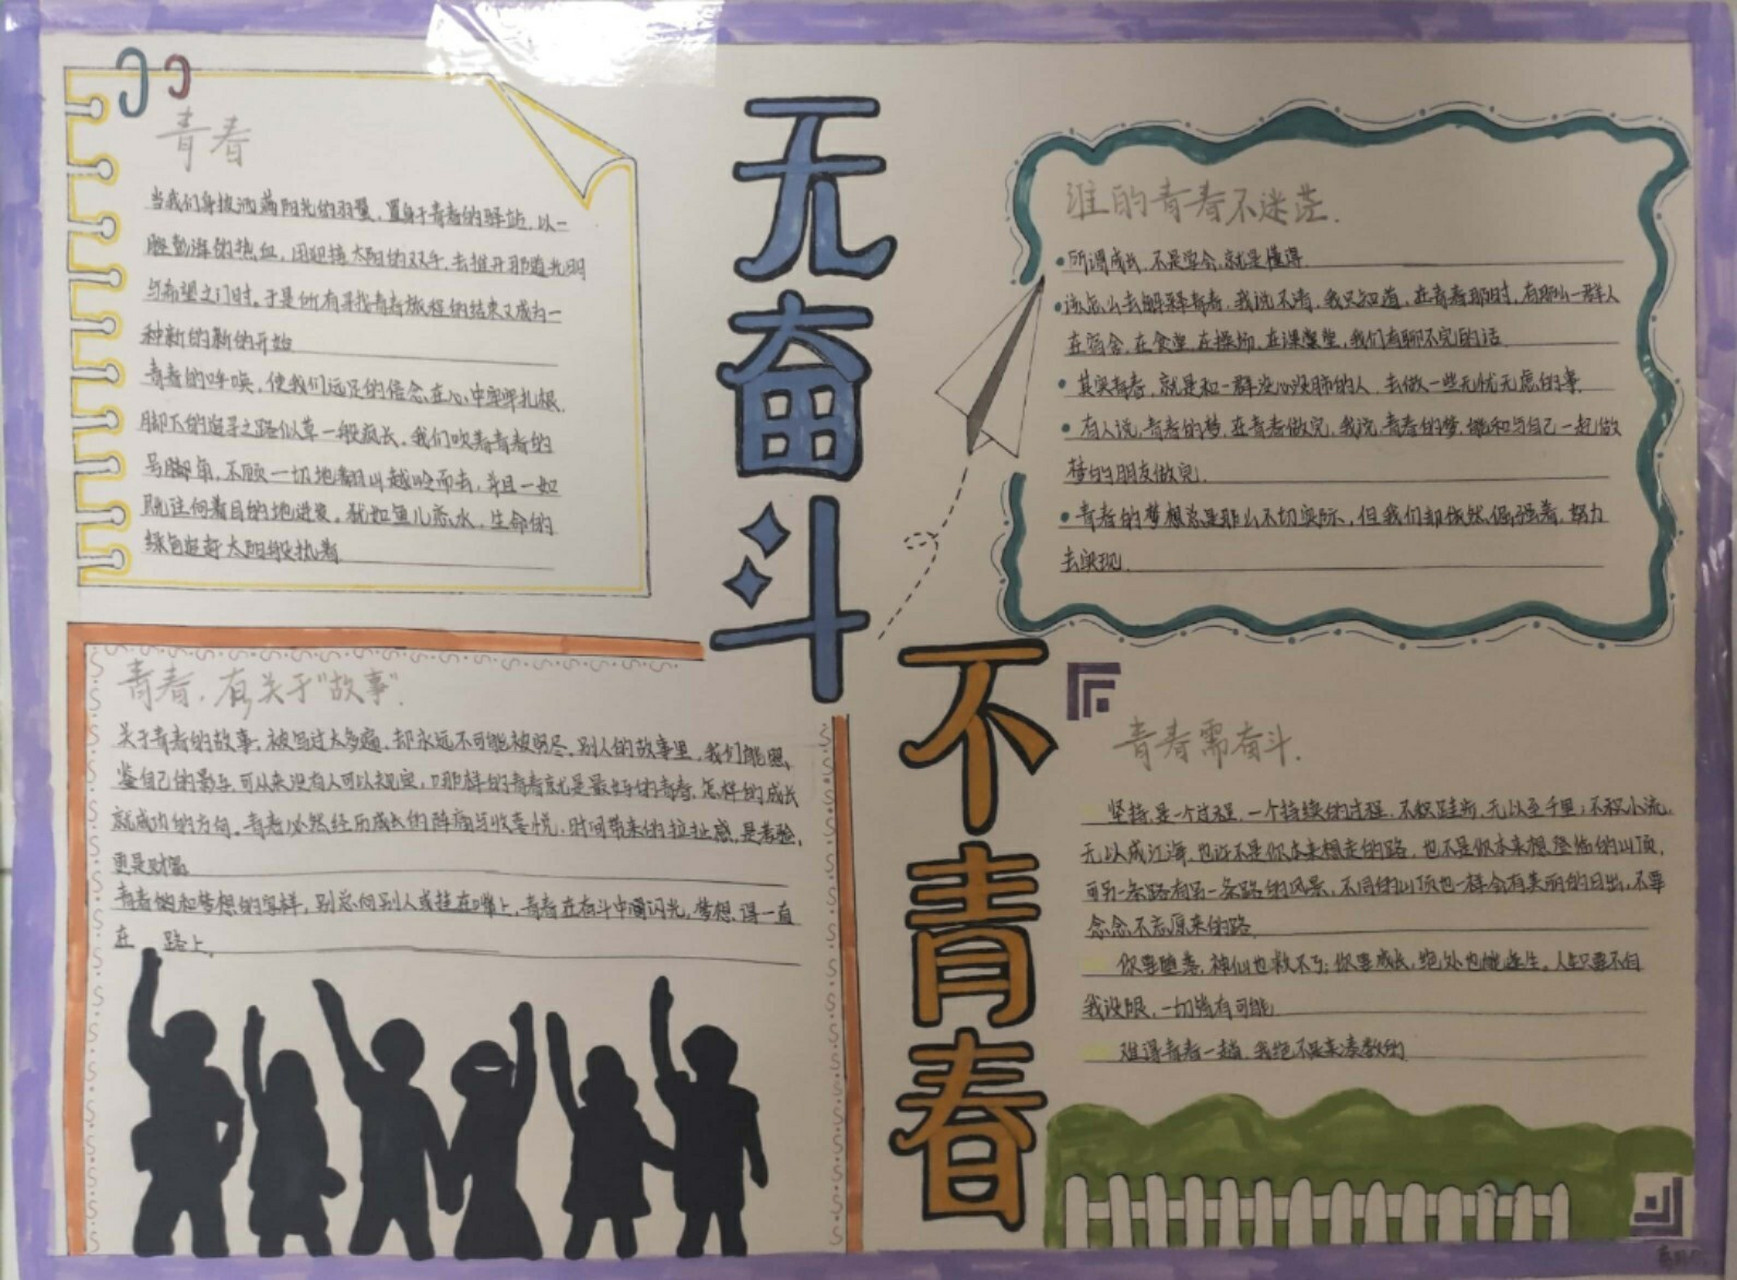 无奋斗
不青春
青春
当我们身披洒满阳光的羽翼，置身于青春的驿站，以一
腔澎湃的热血，用迎接太阳的双手，去推开那道光明
与希望之门时。于是所有寻找青春旅程的结束又成为一
种新的新的开始
青春的呼唤，使我们远足的信念在心中牢牢扎根，
脚下的游子之路似草一般疯长。我们吹着青春的
号脚角，不顾一切地翻山越岭而去，并且一如
既往向着目的地进发。犹如鱼儿恋水，生命的
绿色追赶太阳般执着
谁的青春不迷茫.
所谓成长，不是学会，就是懂得
该怎么去解释青春，我说不清，我只知道，在青春那时，有那么一群人
在宿舍，在食堂，在操场，在课堂，我们有聊不完的话
其实青春，就是和一群没心没肺的人，去做一些无忧无虑的事.
有人说，青春的梦，在青春做完，我说，青春的梦，能和与自己一起做
梦的朋友做完.
青春的梦想总是那么不切实际，但我们却依然倔强着，努力
去实现.
青春，有关于“故事”.
关于青春的故事，被写过太多遍，却永远不可能被穷尽。别人的故事里，我们能照
鉴自己的影子，可从来没有人可以规定，哪样的青春就是最好的青春，怎样的成长
就成功的方向。青春必然经历成长的阵痛与收喜悦，时间带来的拉扯感，是考验，
更是财富
青春的和梦想的字样，别总向别人或挂在嘴上，青春在奋斗中闪光，梦想，得一直
在 路上。
青春需奋斗.
坚持，是一个过程，一个持续的过程。不积跬步，无以至千里；不积小流，
无以成江海，也许不是你本来想走的路，也不是你本来想登临的山顶，
可另一条路有另一条路的风景，不同的山顶也一样会有美丽的日出，不要
念念不忘原来的路.
你要堕落，神仙也救不了；你要成长，绝处也能逢生。人生只要不自
我设限，一切皆有可能
难得青春一趟，我绝不是来凑数的